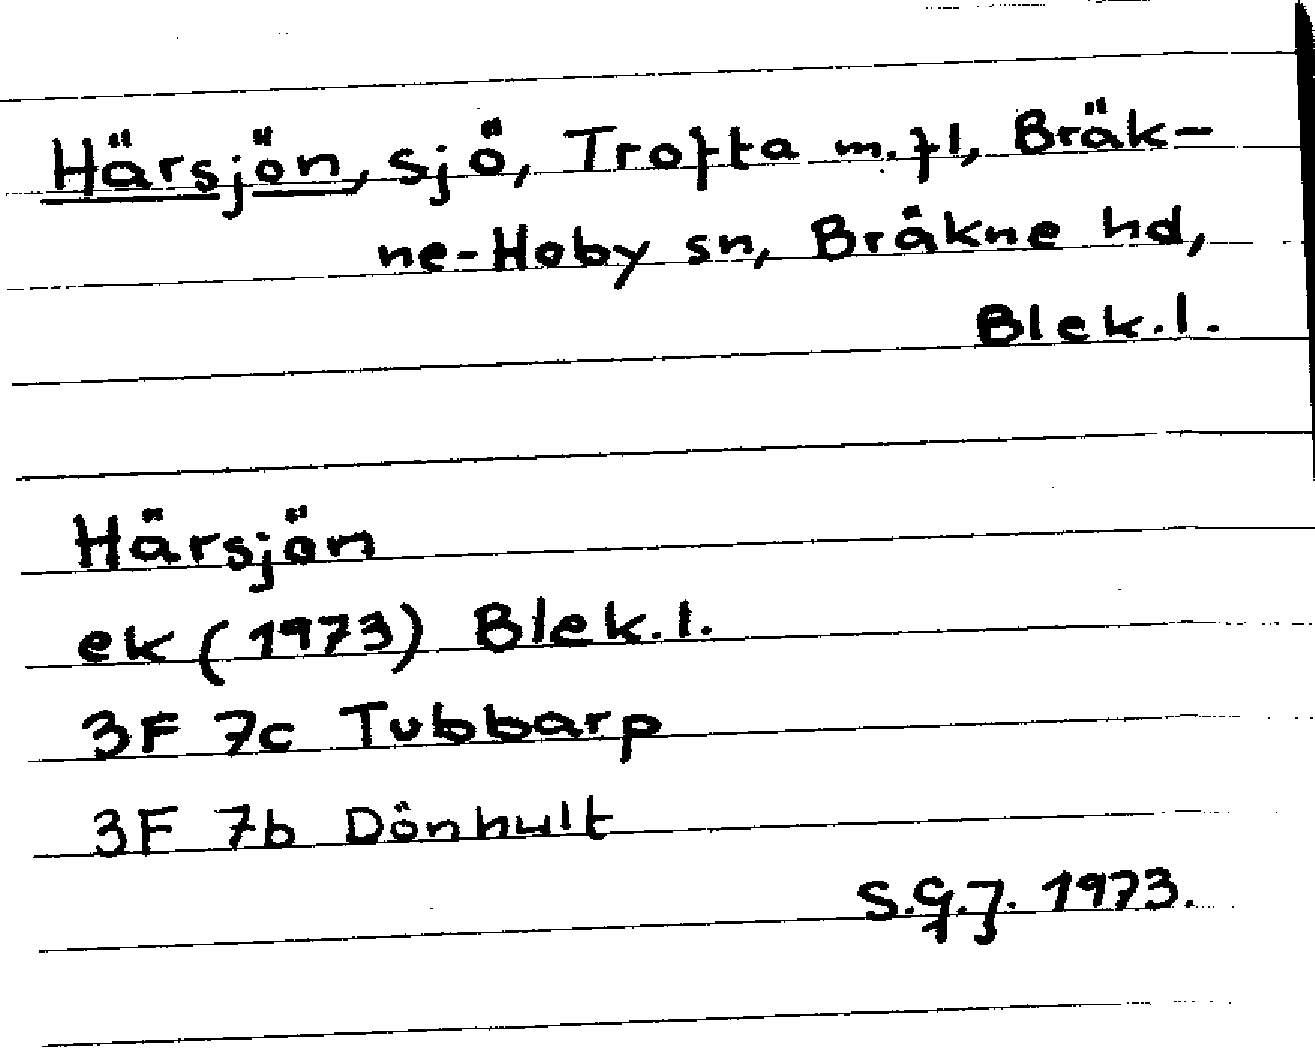 Härsjön, sjö, Trofta m.fl, Bräk-
ne-Hoby sn, Bräkne hd,
Blek.l.
Härsjön
ek (1973) Blek.l.
3F 7c Tubbarp
3F 7b Dönhult
S.G.J. 1973.